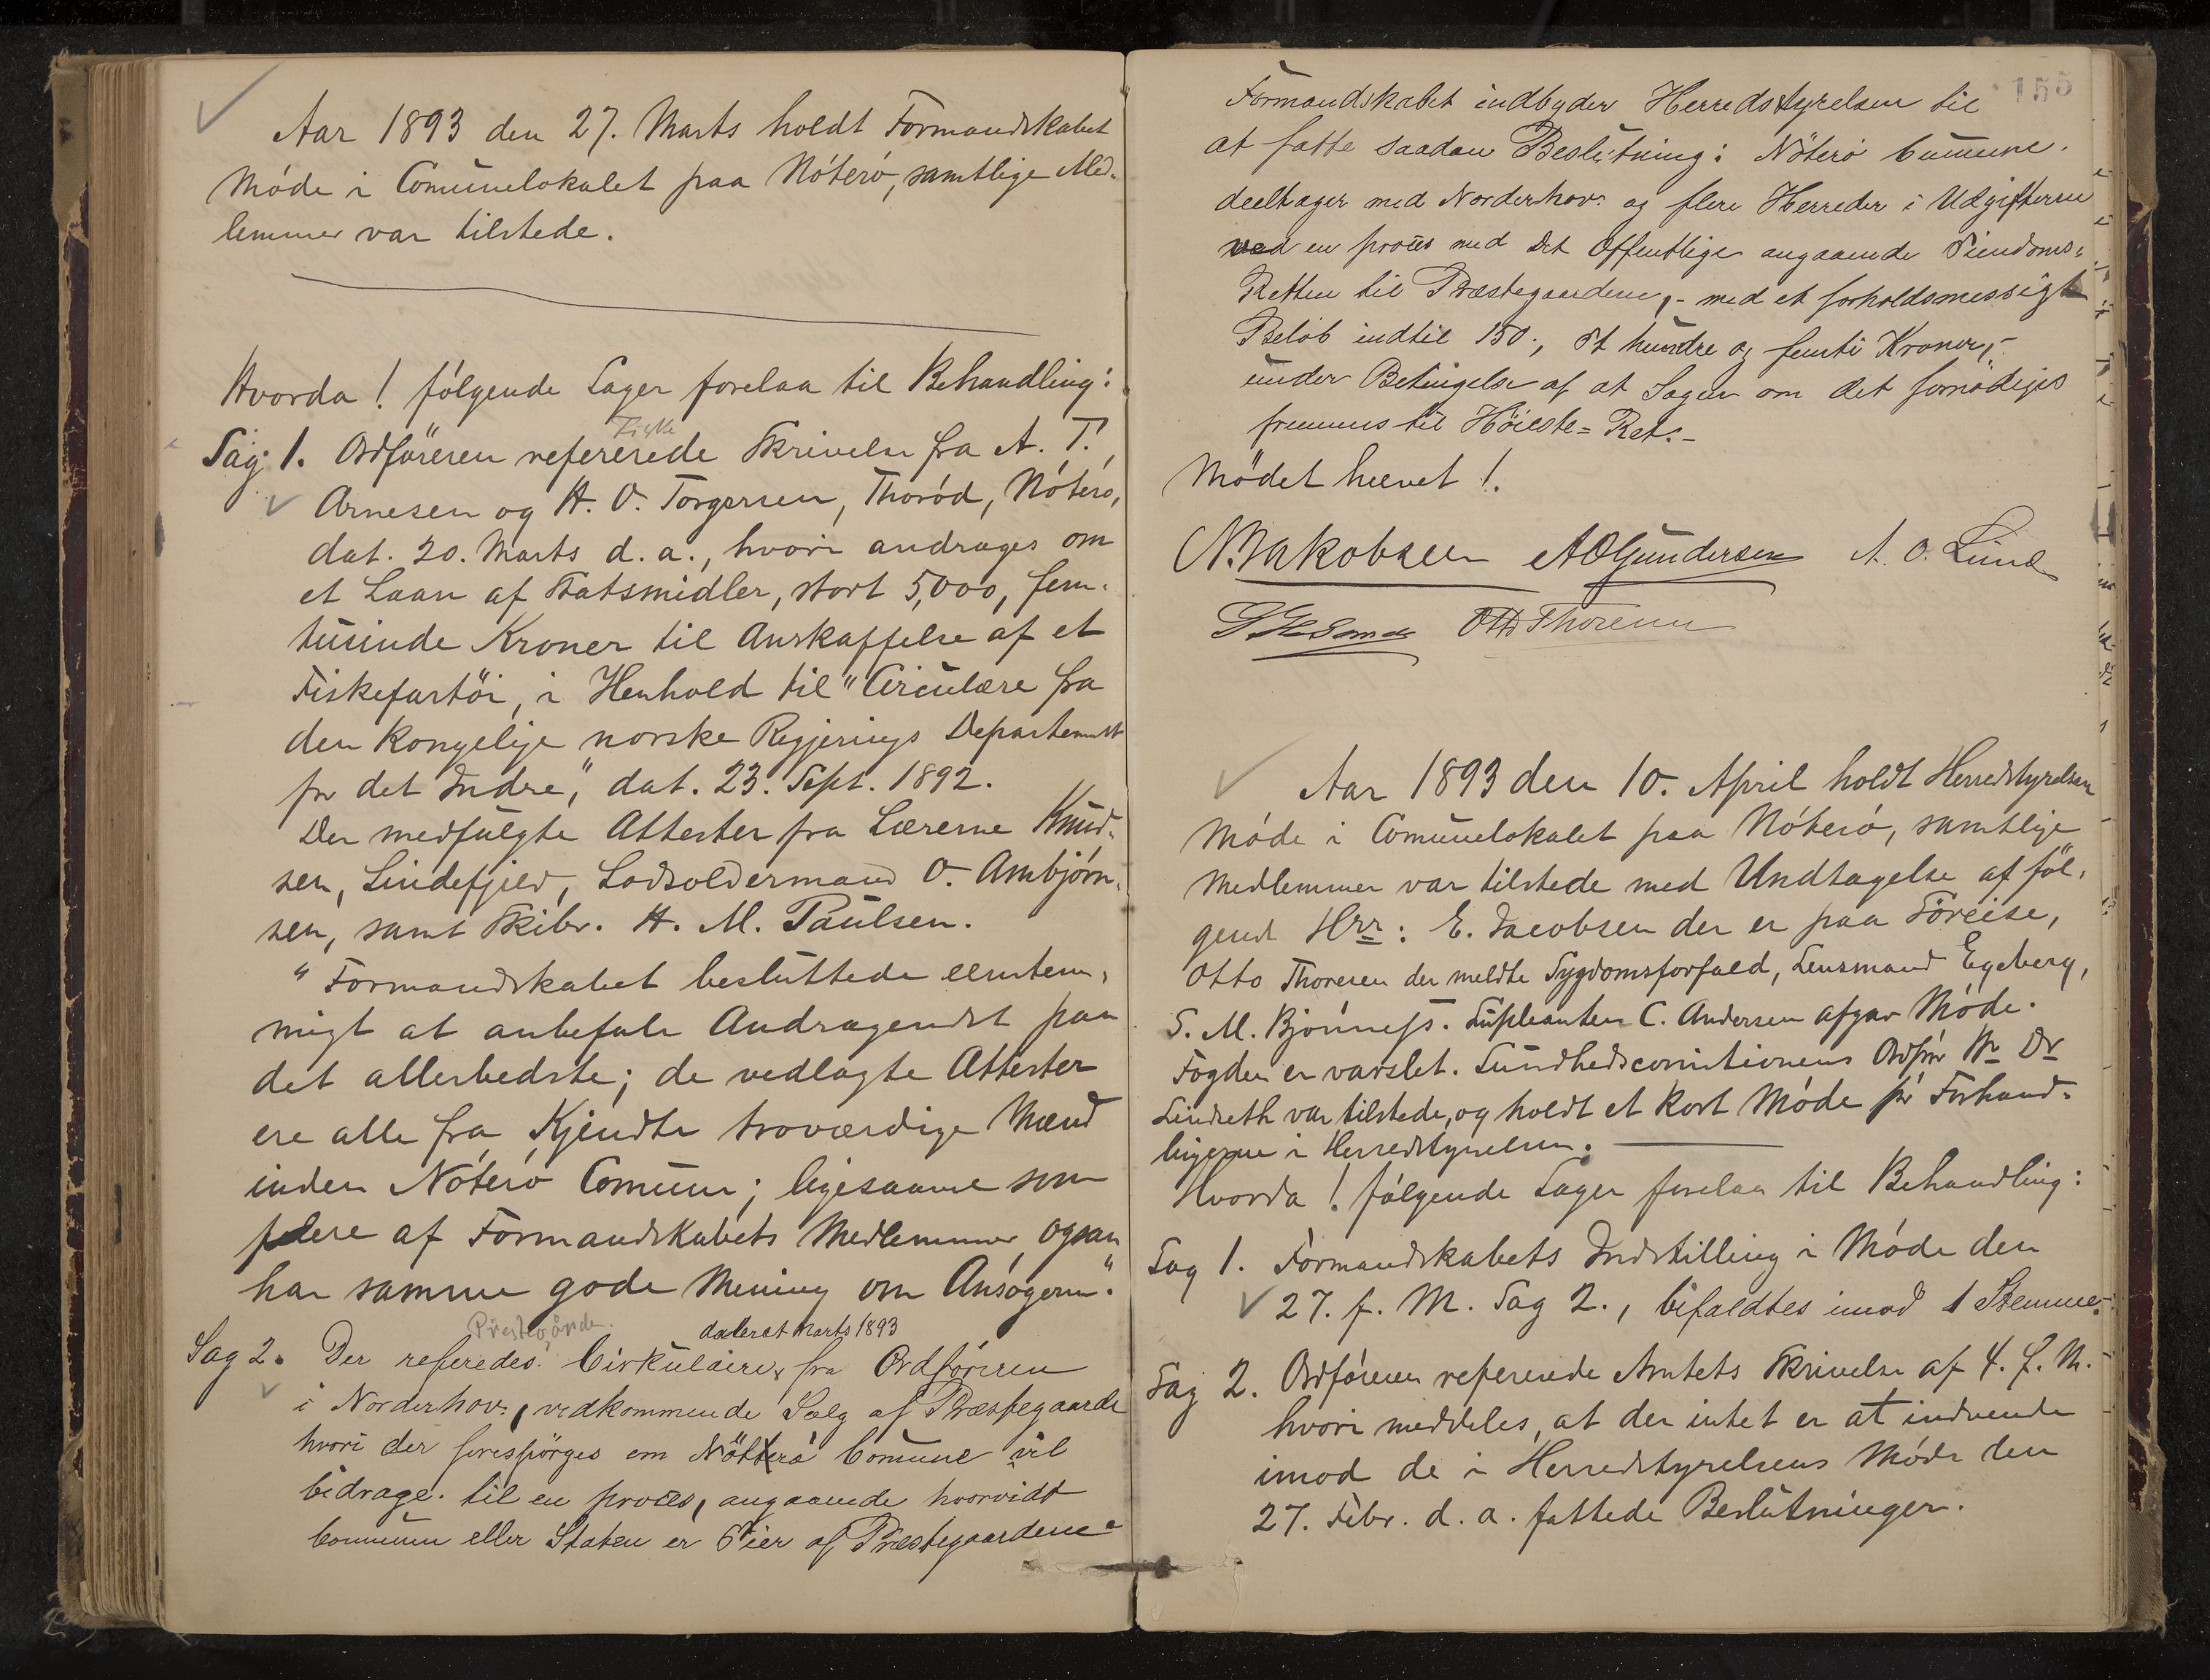 Aar 1893 den 27. Marts holdt Formandskabet
Møde i Comunelokalet paa Nøterø, samtlige Med-
lemmer var tilstede.
Hvorda! følgende Sager forelaa til Behandling:
Fiske
Sag 1. Ordføreren refererede Skrivelse fra A. T.
Arnesen og H. O. Torgersen, Thorød, Nøterø,
dat. 20. Marts d. a., hvori andrages om
et Laan af Statsmidler, stort 5,000, fem-
tusinde Kroner til Anskaffelse af et
Fiskefartöi, i Henhold til "Circulære fra
den kongelige norske Regjerings Departement
for det Indre", dat. 23. Sept. 1892.
Der medfulgte Attester fra Lærerne Knud-
sen, Lindefjeld, Lodsoldermand O. Ambjørn-
sen, samt Skibr. H. M. Paulsen.
"Formandskabet besluttede eenstem-
migt at anbefale Andragendet paa
det allerbedste; de vedlagte Attester
ere alle fra Kjendte troværdige Mænd
inden Nøterø Comune; ligesaavel som
flere af Formandskabets Medlemmer ogsaa
har samme gode Mening om Ansøgerne".
Prestegårde. dateret Marts 1893
Sag 2. Der referedes Cirkulaire fra Ordføreren
i Norderhov, vedkommende Salg af Præstegaarde
hvori der forespörges om Nötterö Comune vil
bidrage til en proces, angaaende hvorvidt
Comunen eller Staten er Eier af Præstegaardene
155
Formandskabet indbyder Herredstyrelsen til
at fatte saadan Beslutning: Nöterö Comune
deeltager med Norderhov og flere Herreder i Udgifterne
ved en proces med det Offentlige angaaende Eiendoms-
Retten til Præstegaardene, - med et forholdsmessigt
Belöb indtil 150, Et hundre og femti Kroner, -
under Betingelse af at Sagen om det fornödiges
fremmes til Höieste-Ret. -
Mødet hævet!.
N. Jakobsen A O Gundersen A. O. Lund
Otto Thoresen
Aar 1893 den 10. April holdt Herredstyrelsen
Møde i Comunelokalet paa Nøterø, samtlige
Medlemmer var tilstede med Undtagelse af föl-
gende Hrr: E. Jacobsen der er paa Söreise,
Otto Thoresen der meldte Sygdomsforfald, Lensmand Egeberg,
S. M. Bjønness. Supleanten C. Andersen afgav Møde.
Fogden er varslet. Sundhedscomitionens Ordfør Hr Dr
Lindseth var tilstede, og holdt et kort Møde før Forhand-
lingerne i Herredstyrelsen.
Hvorda! følgende Sager forelaa til Behandling:
Sag 1. Formandskabets Indstilling i Møde den
27. f. M. Sag 2., bifaldtes imod 1 Stemme.
Sag 2. Ordføreren refererede Amtets Skrivelse af 4. f. M.
hvori meddeles, at der intet er at indvende
imod de i Herredstyrelsens Møde den
27. Febr. d. a. fattede Beslutninger.